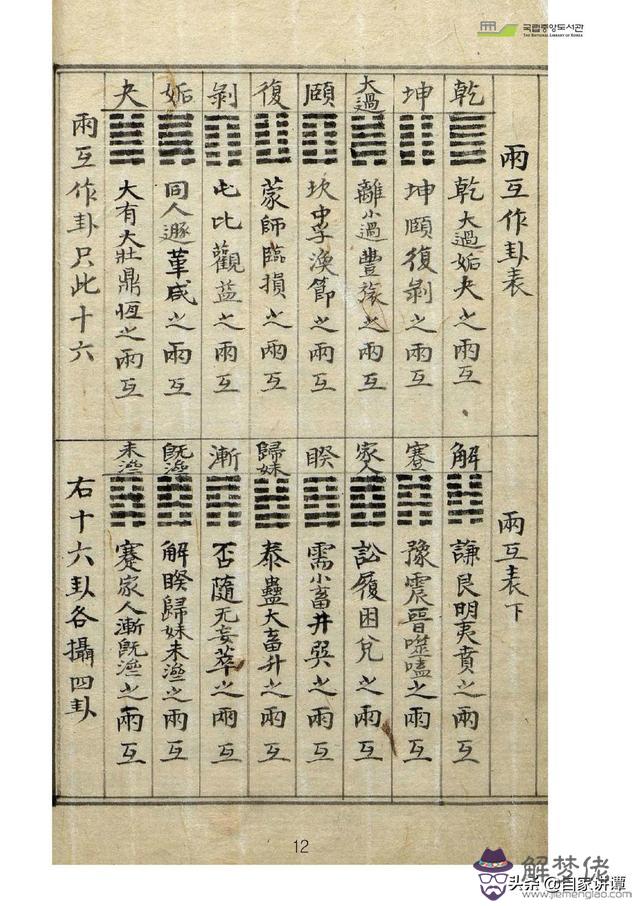 국립중앙도서관
THE NATIONAL LIBRARY OF KOREA
兩互作卦表
乾
乾大過姤夬之兩互
坤
坤頤復剝之兩互
大過
離小過豐旅之兩互
頤
坎中孚渙節之兩互
復
蒙師臨損之兩互
剝
屯比觀益之兩互
姤
同人遯革咸之兩互
夬
大有大壯鼎恆之兩互
兩互作卦只此十六
兩互表下
解
謙艮明夷賁之兩互
蹇
豫震晉噬嗑之兩互
家人
訟履困兌之兩互
睽
需小畜井巽之兩互
歸妹
泰蠱大畜升之兩互
漸
否隨无妄萃之兩互
旣濟
解睽歸妹未濟之兩互
未濟
蹇家人漸旣濟之兩互
右十六卦各攝四卦
12
解梦佬
头条 @自家讲谭
www.jiemenglao.com